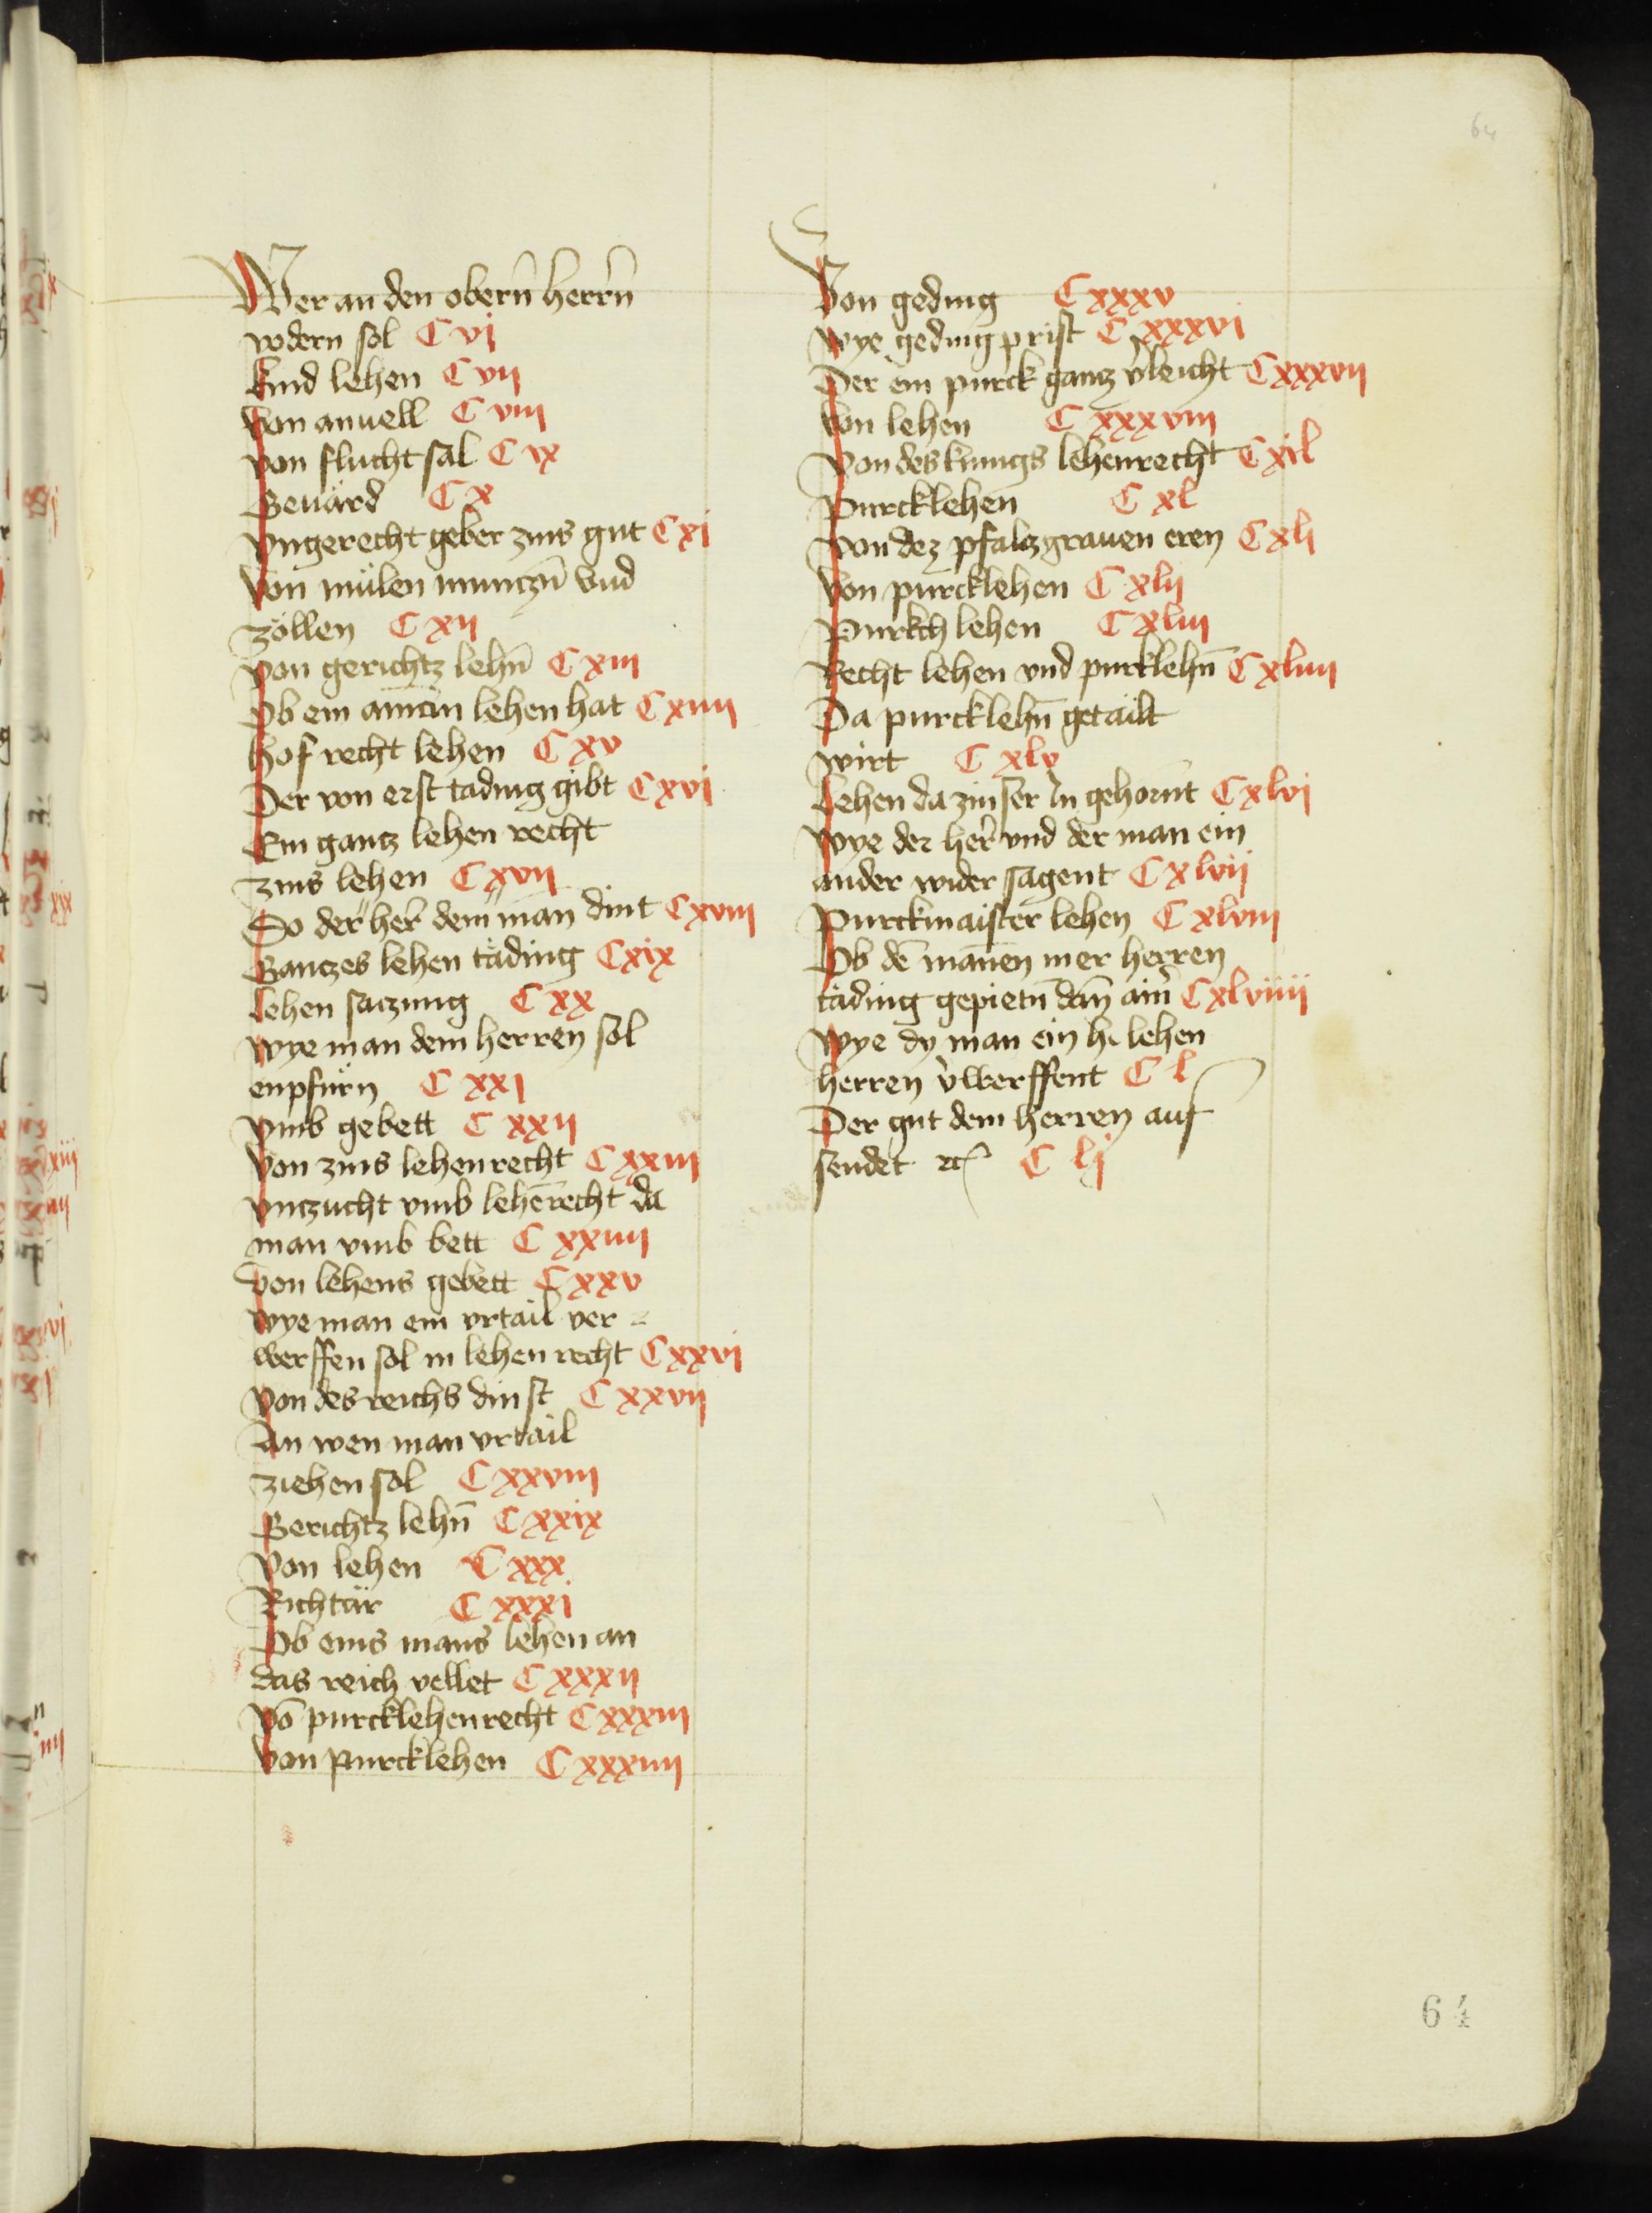 64
Wer an den obern̄ herrn̄
vodern sol C vj
Kind lehen C vij
Von anuell C viij
Von flucht sal C ix
Geuärd C x
Vngerecht geber zins gut C xj
Von mülen munczn̄ vnd
zöllen C xij
Von gerichtz lehn̄ C xiij
Ob ein amān lehen hat C xiiij
Hof recht lehen C xv
Der von erst tading gibt C xvj
Ein gantz lehen recht
zins lehen C xvij
So der her̄ dem man dint C xviij
Gantzes lehen täding C xix
Lehen saczung C xx
Wye man dem herren sol
enpfürn C xxj
Vmb gebett C xxij
Von zins lehenrecht C xxiij
Vnczucht vmb lehērecht da
man vmb bett C xxiiij
Von lehens gebett C xxv
Wye man ein vrtail ver=
werffen sol in lehen recht C xxvj
Von des reichs dinst C xxvij
An wen man vrtail
ziehen sol C xxviij
Gerichtz lehn̄ C xxix
Von lehen C xxx
Richtär C xxxj
Ob eins mans lehen an
das reich vellet C xxxij
Vō purcklehenrecht C xxxiij
Von purcklehen C xxxiiij
Von geding C xxxv
Wye geding prist C xxxvj
Der ein purck gantz v̓leicht C xxxvij
Von lehen C xxxviij
Von des kunigs lehenrecht C xil
Purcklehen C xl
Von dez pfaltzgrauen eren C xlj
Von purcklehen C xlij
Purkch lehen C xliij
Recht lehen vnd purklehn̄ C xliiij
Da purcklehn̄ getailt
wirt C xlv
Lehen da zinser in gehornt C xlvj
Wye der her̄ vnd der man ein
ander wider sagent C xlvij
Purckmaister lehen C xlviij
Ob dē mannen mer herren
täding gepietn̄ dan̄ ain̓ C xlviiij
Wye dy man ein h lehen
herren v̓werffent C l
Der gut dem herren auf
sendet ꝛc C lj
64